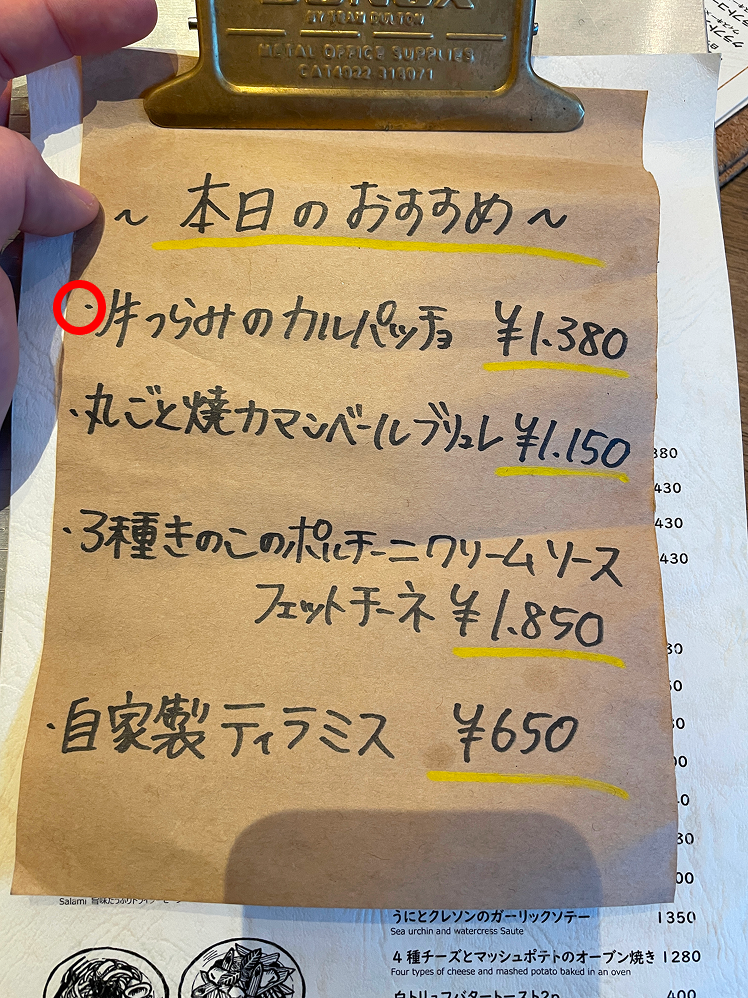 BY TEAM DULTON
METAL OFFICE SUPPLIES
CAT4022 318071
～ 本日のおすすめ ～
・牛つらみのカルパッチョ ¥1.380
・丸ごと焼カマンベールブリュレ ¥1.150
・3種きのこのポルチーニクリームソース
フェットチーネ ¥1.850
・自家製ティラミス ¥650
380
430
430
430
Salami
うにとクレソンのガーリックソテー 1350
Sea urchin and watercress Saute
4種チーズとマッシュポテトのオーブン焼き 1280
Four types of cheese and mashed potato baked in an oven
白トリュフバタートースト2p 400